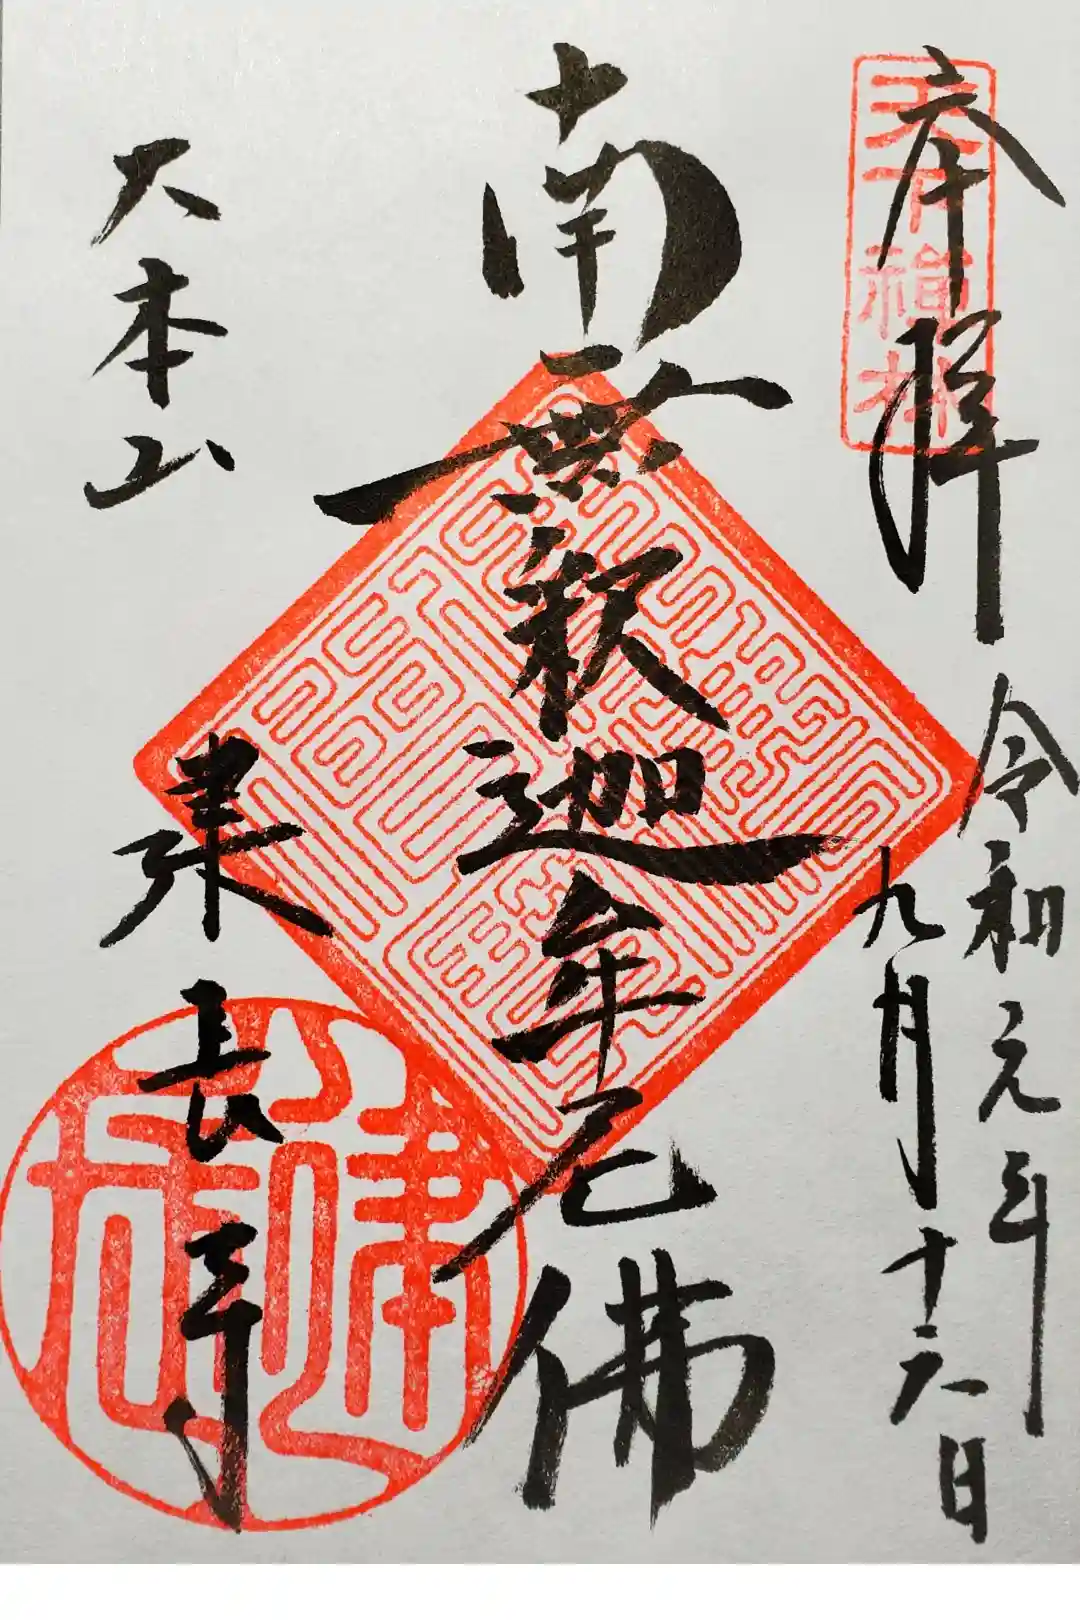 奉拝
天下禅林
令和元年
九月十六日
南無釈迦牟尼佛
大本山
建長寺